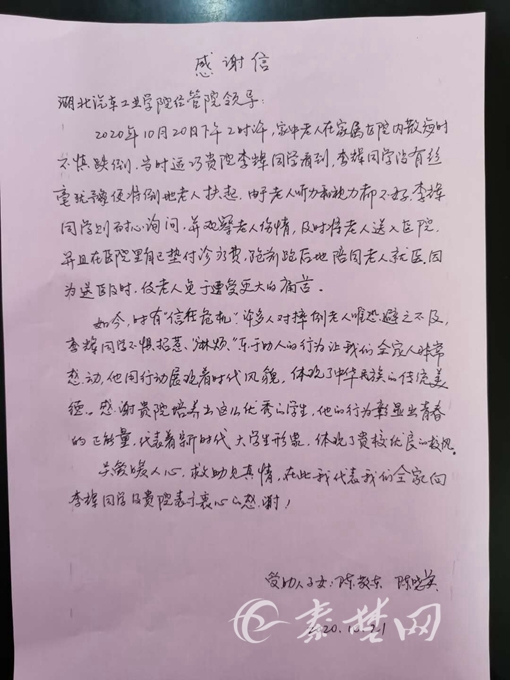 感谢信
湖北汽车工业学院经管院领导:
2020年10月20日下午2时许,家中老人在家属区院内散步时
不慎跌倒,当时适巧贵院李辉同学看到,李辉同学没有丝
毫犹豫便将倒地老人扶起,由于老人听力和视力都不好,李辉
同学则耐心询问,并观察老人伤情,及时将老人送入医院,
并且在医院里自己垫付诊疗费,跑前跑后地陪同老人就医,因
为送医及时,使老人免于遭受更大的痛苦。
如今,时有“信任危机”,许多人对摔倒老人唯恐避之不及,
李辉同学不惧招惹“麻烦”、乐于助人的行为让我们全家人非常
感动,他用行动展现着时代风貌,体现了中华民族的传统美
德。感谢贵院培养出这么优秀的学生,他的行为彰显出青春
的正能量,代表着新时代大学生形象,体现了贵校优良的校风。
关爱暖人心,救助见真情,在此我代表我们全家向
李辉同学及贵院表示衷心的感谢!
受助人子女:陈
20.10.21
秦楚网